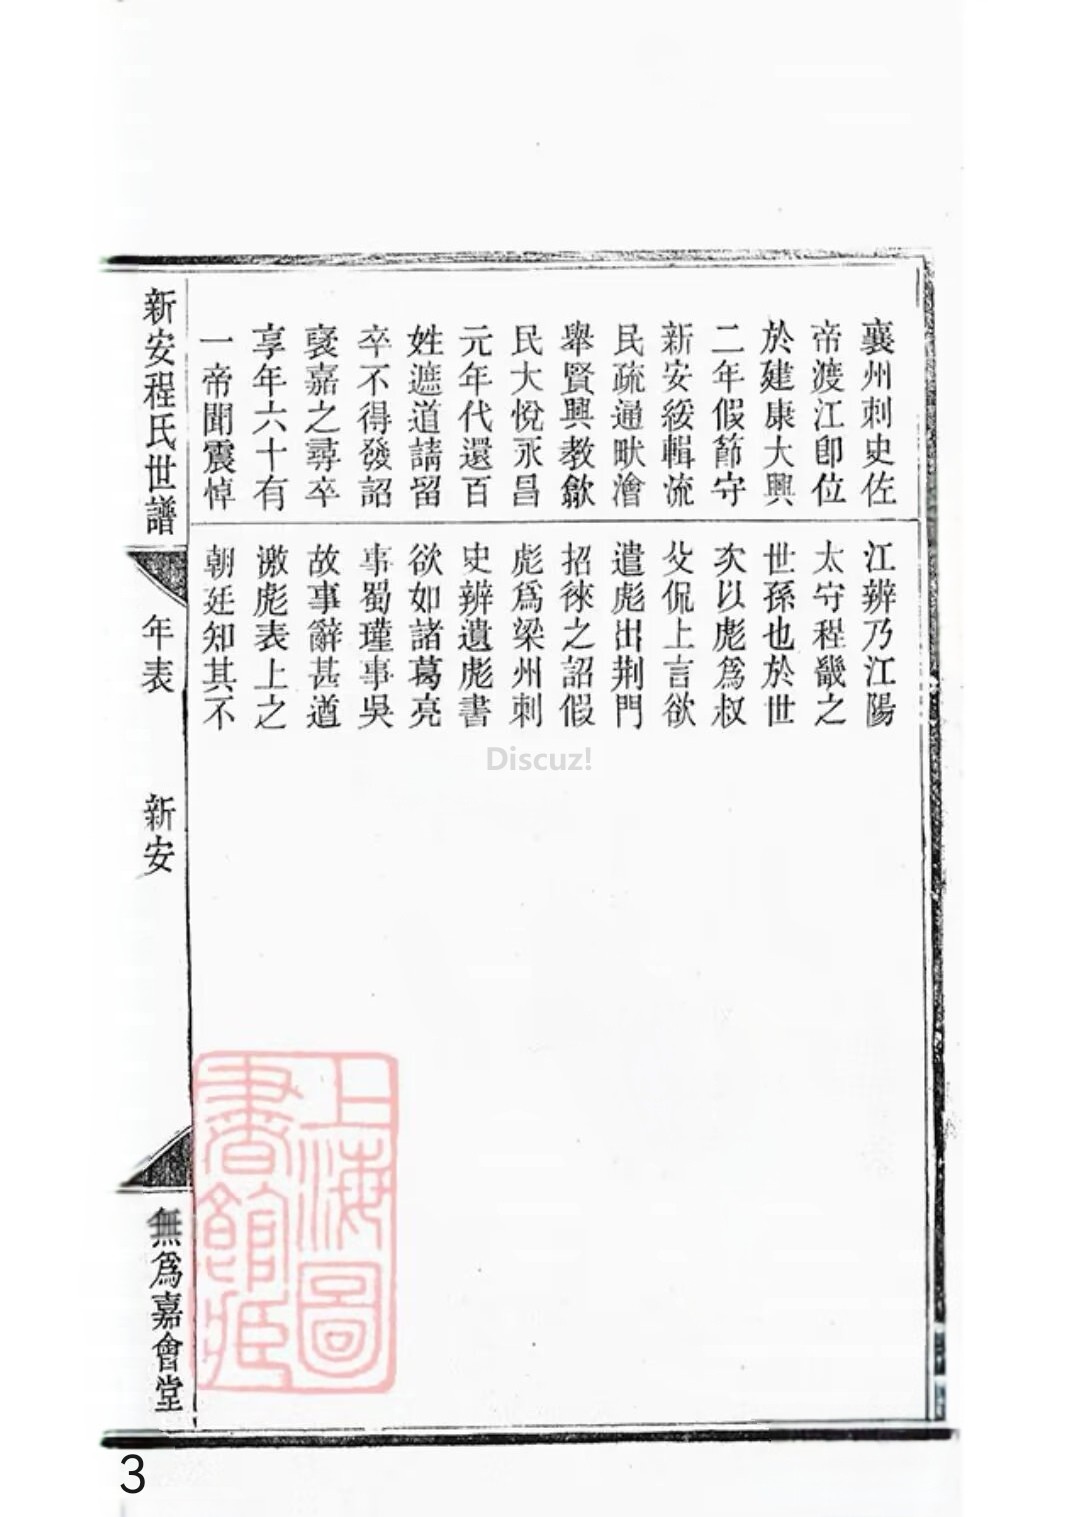 襄州刺史佐
帝渡江卽位
於建康大興
二年假節守
新安綏輯流
民疏通畎澮
舉賢興教歙
民大悅永昌
元年代還百
姓遮道請留
卒不得發詔
襃嘉之尋卒
享年六十有
一帝聞震悼
江辨乃江陽
太守程畿之
世孫也於世
次以彪爲叔
父侃上言欲
遣彪出荆門
招徠之詔假
彪爲梁州刺
史辨遺彪書
欲如諸葛亮
事蜀瑾事吳
故事辭甚遒
激彪表上之
朝廷知其不
新安程氏世譜
年表
新安
無爲嘉會堂
上海圖
書館藏
Discuz!
3